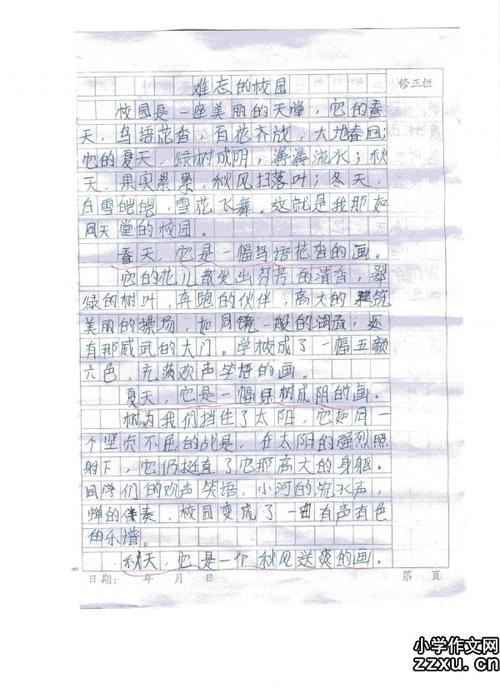 难忘的校园
修正栏
校园是一座美丽的天堂，它的春
天，鸟语花香，百花齐放，大地春回；
它的夏天，绿树成阴，潺潺流水；秋
天，果实累累，秋风扫落叶；冬天，
白雪皑皑，雪花飞舞。这就是我那如
同天堂的校园。
春天，它是一幅鸟语花香的画。
它的花儿散发出芬芳的清香，翠
绿的树叶，奔跑的伙伴，高大的建筑
美丽的操场，和同镜一般的湖面，还
有那威武的大门。学校成了一幅五颜
六色，充满欢声笑语的画。
夏天，它是一幅绿树成阴的画。
树为我们挡住了太阳，它如同一
个坚贞不屈的战士，在太阳的强烈照
射下，它仍挺直了它那高大的身躯。
同学们的欢声笑语，小河的流水声，
蝉的伴奏，校园变成了一曲有声有色
的乐谱。
秋天，它是一个秋风送爽的画。
日期： 年 月 日 第 页
小学作文网
zzxu.cn